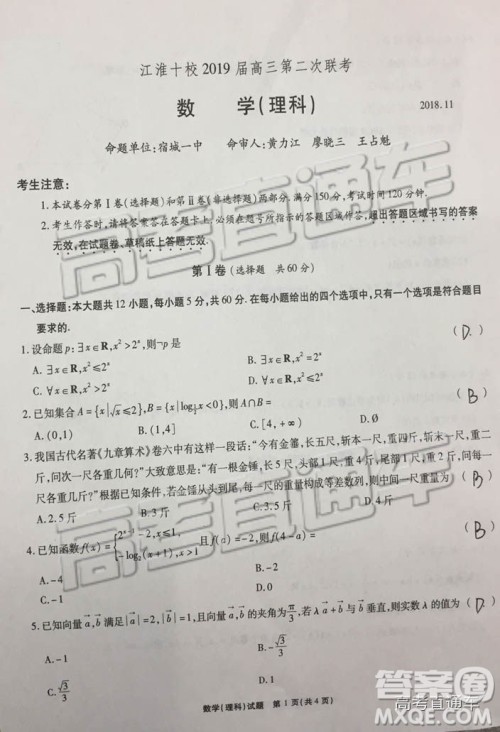 江淮十校 2019 届高三第二次联考
数 学(理科)
2018.11
命题单位:宿城一中 命审人:黄力江 廖晓三 王占魁
考生注意:
1.本试卷分第Ⅰ卷(选择题)和第Ⅱ卷(非选择题)两部分.满分 150 分,考试时间 120 分钟.
2.考生作答时,请将答案答在答题卡上.必须在题号所指示的答题区域作答,超出答题区域书写的答案
无效,在试题卷、草稿纸上答题无效.
第Ⅰ卷(选择题 共 60 分)
一、选择题:本大题共 12 小题,每小题 5 分,共 60 分.在每小题给出的四个选项中,只有一个选项是符合题目
要求的.
1.设命题 p:∃x∈R,x²>2ˣ,则¬p 是 (D.)
A.∃x∈R,x²⩽2ˣ B.∃x∈R,x²<2ˣ
C.∀x∈R,x²>2ˣ D.∀x∈R,x²⩽2ˣ
2.已知集合 A={x|√x⩽2},B={x|log₁x<0},则 A∩B= (B)
A.(0,1) B.(1,4] C.[4,+∞) D.∅
3.我国古代名著《九章算术》卷六中有这样一段话:"今有金箠,长五尺,斩本一尺,重四斤,斩末一尺,重二
斤,问次一尺各重几何?"大致意思是:"有一根金锤,长 5 尺,头部 1 尺,重 4 斤,尾部 1 尺,重 2 斤,
(B)
A.2.5 斤 B.3 斤 C.3.5 斤 D.4 斤
4.已知函数 f(x)= 且 f(a)=-2,则 f(4-a)= (B)
-log₂(x+1),x>1
A.-1 B.-2
C.1 D.2
5.已知向量 a,b 满足|a|=2,|b|=1,且向量 a,b 的夹角为 π/3,若 λa+b 与 b 垂直,则实数 λ 的值为 (D)
A.-1 B.-√3/3
C.√3/3 D.1
数学(理科)试题 第 1 页(共 4 页)
高考直通车
高考直通车
答案圈
MXQE.COM
高考直通车